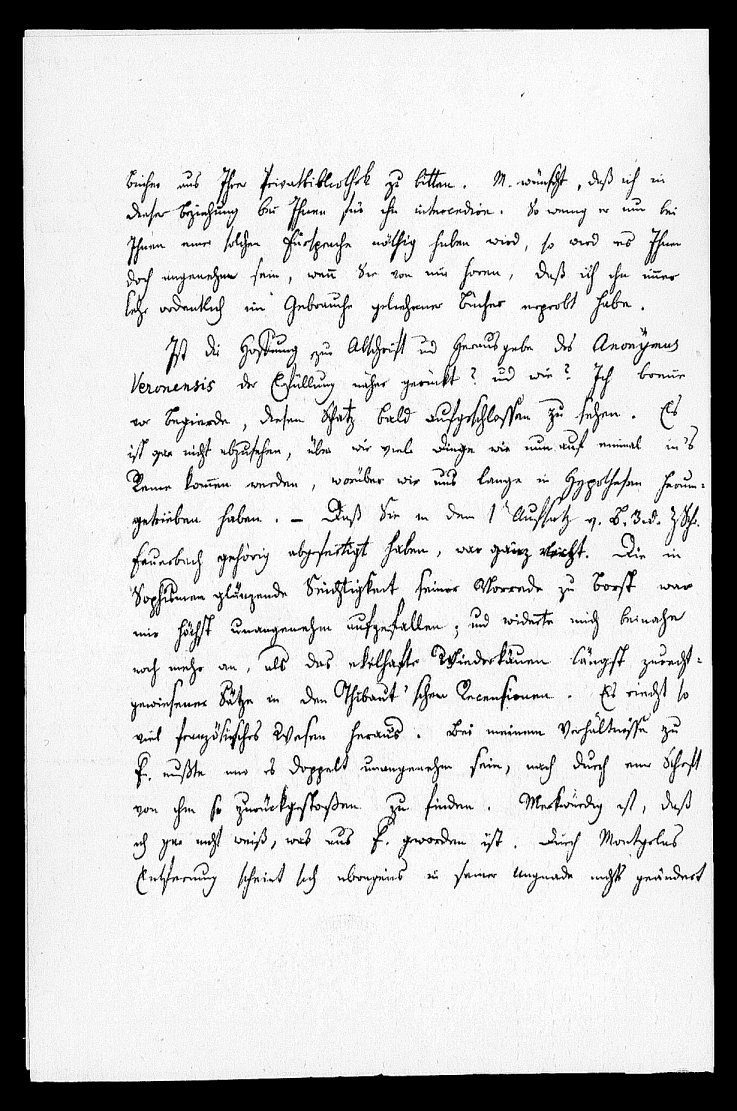 Bücher aus Ihrer Privatbibliothek zu bitten. M. wünscht, daß ich in
dieser Beziehung bei Ihnen für ihn intercedire. So wenig er nun bei
Ihnen einer solchen Fürsprache nöthig haben wird, so wird es Ihnen
doch angenehm sein, wenn Sie von mir hören, daß ich ihn immer
sehr ordentlich im Gebrauche geliehener Bücher erprobt habe.
Ist die Hoffnung zur Abschrift und Herausgabe des Anonÿmus
Veronensis der Erfüllung näher gerückt? und wie? Ich brenne
vor Begierde, diesen Schatz bald aufgeschlossen zu sehen. Es
ist gar nicht abzusehen, über wie viele Dinge wir nun auf einmal in's
Reine kommen werden, worüber wir uns lange in Hypothesen herum-
getrieben haben. – Daß Sie in dem 1t Aufsatz v. B. 3. d. Z. Sch.
Feuerbach gehörig abgefertigt haben, war ganz recht. Die in
Sophismen glänzende Seichtigkeit seiner Vorrede zu Borst war
mir höchst unangenehm aufgefallen; und widerte mich beinahe
noch mehr an, als das ekelhafte Wiederkäuen längst zurecht-
gewiesener Sätze in den Thibaut'schen Recensionen. Es riecht so
viel französisches Wesen heraus. Bei meinem Verhältnisse zu
F. mußte mir es doppelt unangenehm sein, mich durch eine Schrift
von ihm so zurückgestoßen zu finden. Merkwürdig ist, daß
ich gar nicht weiß, was aus F. geworden ist. Durch Montgelas
Entfernung scheint sich übrigens in seiner Ungnade nichts geändert